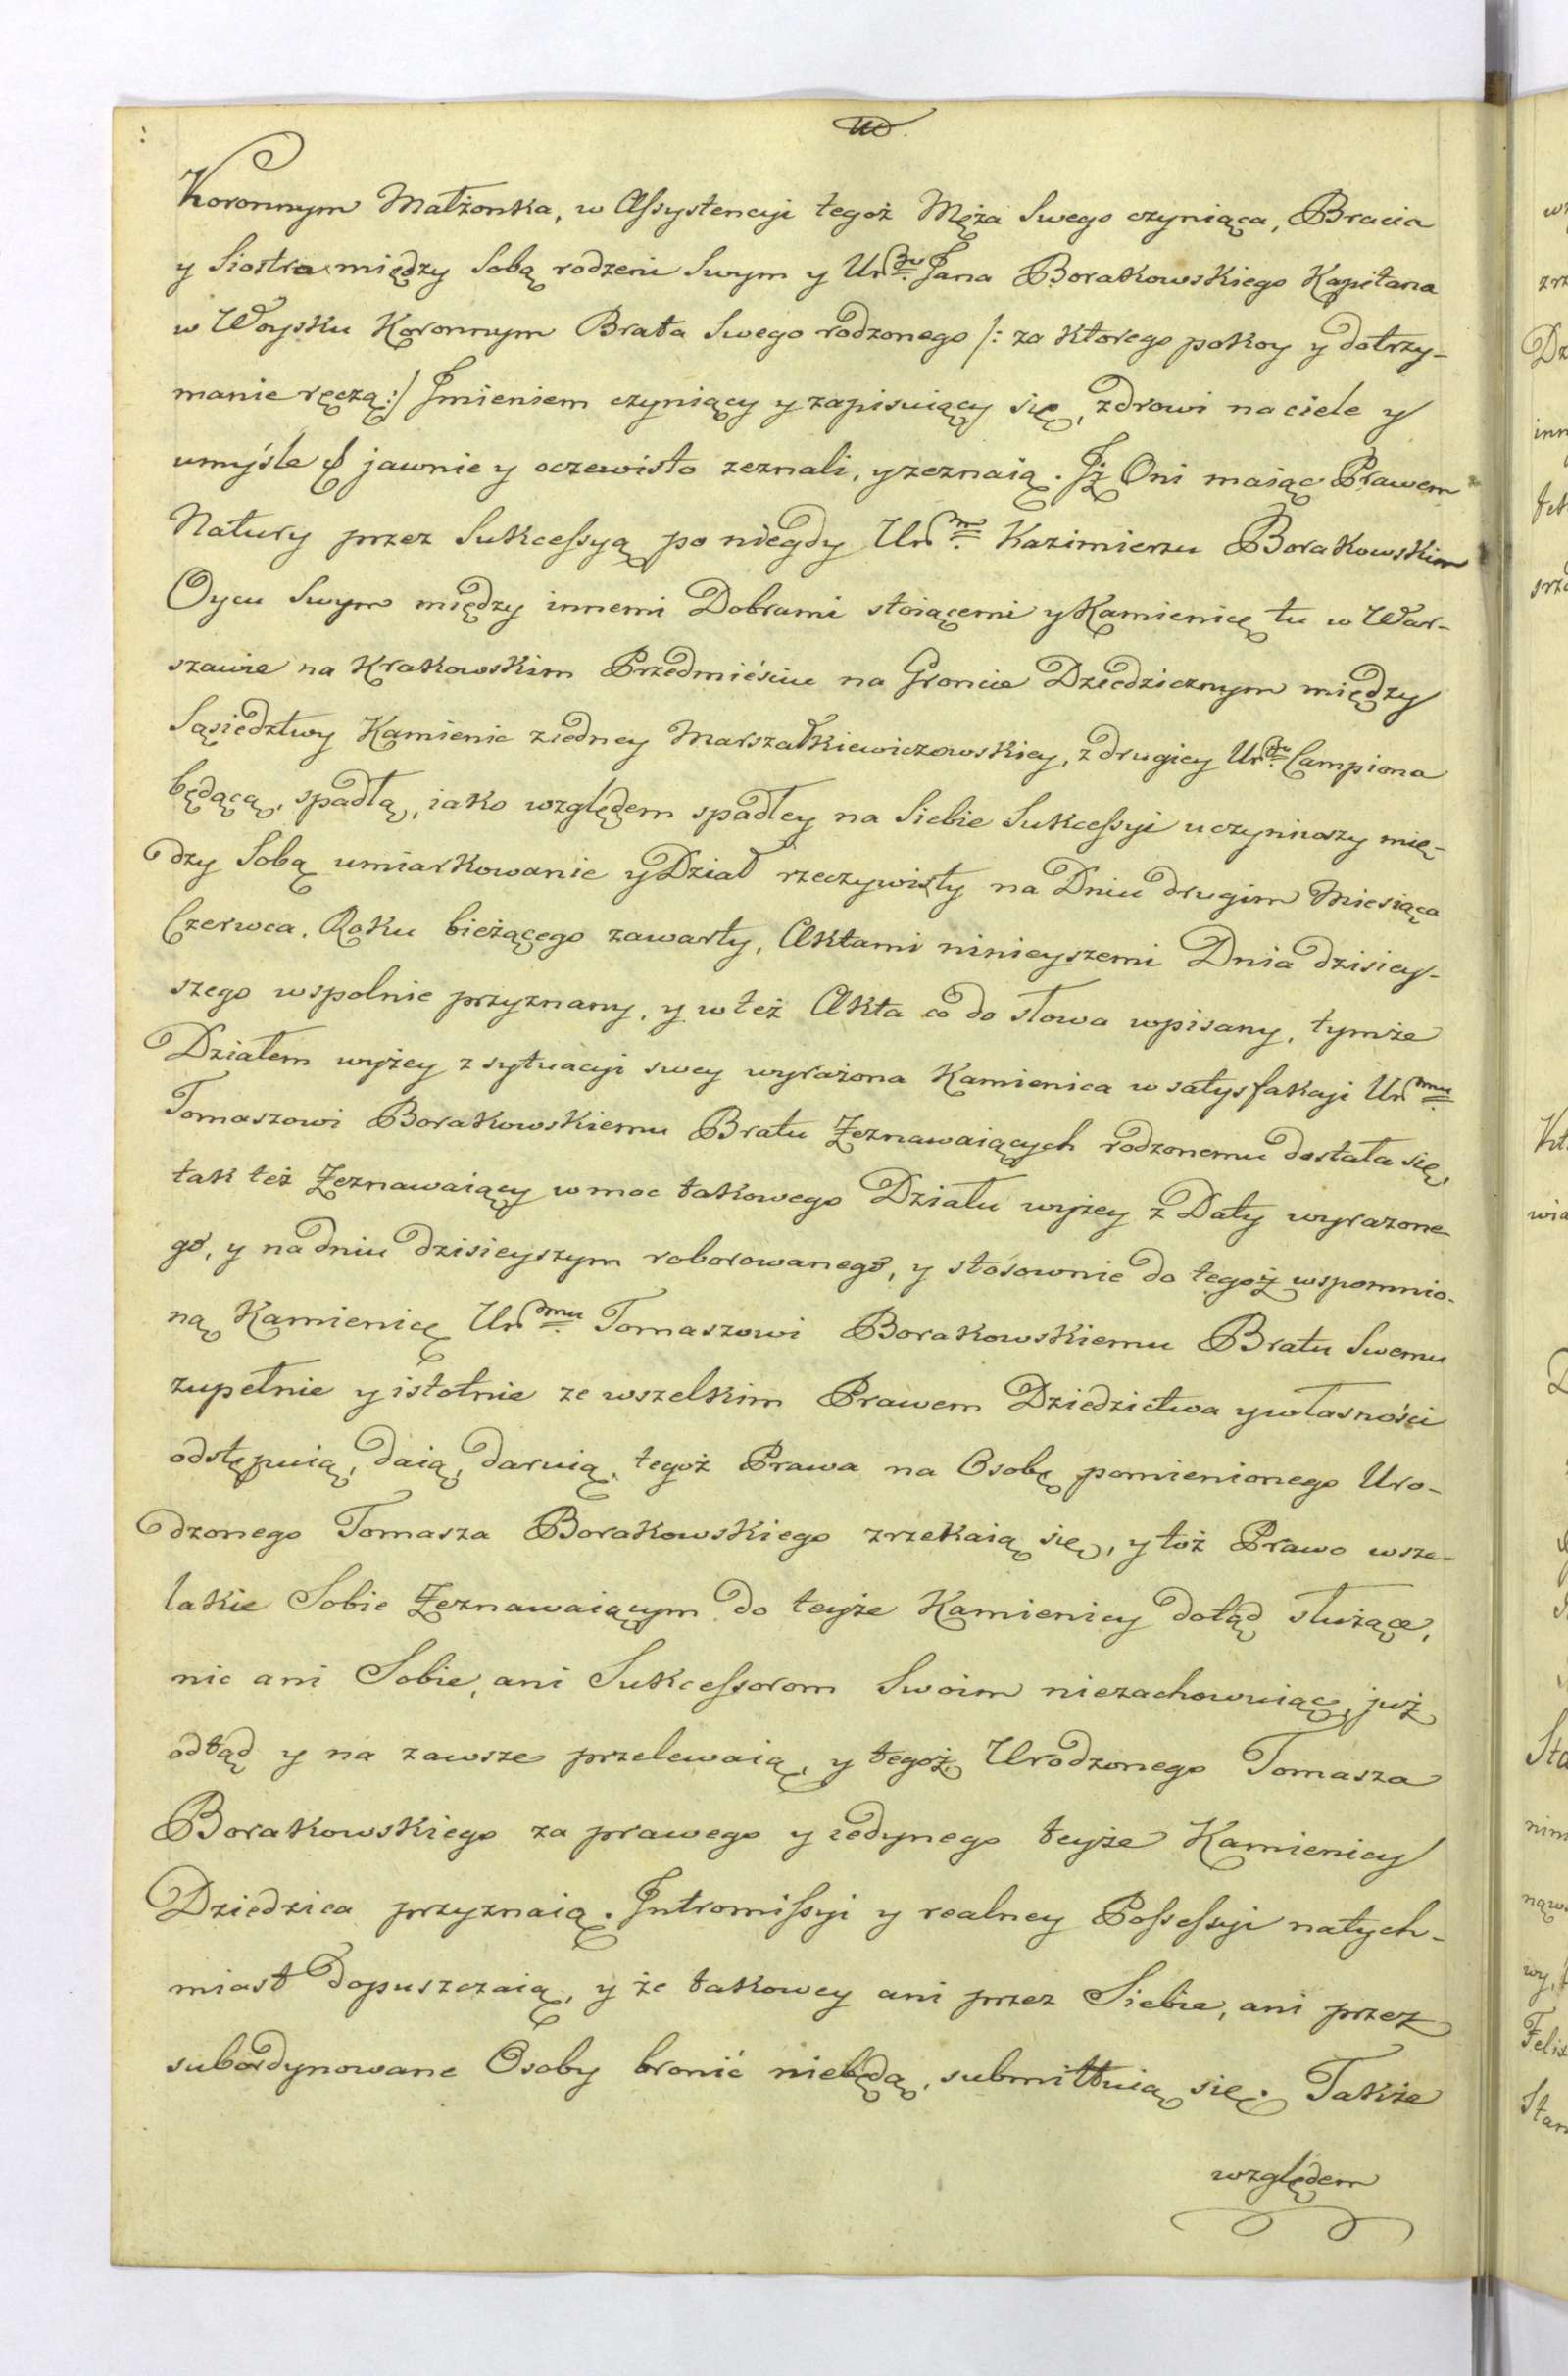 Koronnym Małżonka, w Assystencyi tegoż Męża Swego czyniąca, Bracia
y Siostra między Sobą rodzeni Swym y Ur^go Jana Borakowskiego Kapitana
w Woysku Koronnym Brata Swego rodzonego /: za ktorego pokoy y dotrzy-
manie ręczą :/ Jmieniem czyniący y zapisuiący się, zdrowi na ciele y
umyśle jawnie y oczewisto zeznali, y zeznaią. Jż Oni maiąc Prawem
Natury przez Sukcessyą po niegdy Ur^m Kazimierzu Borakowskim
Oycu Swym między innemi Dobrami stoiącemi y Kamienicę tu w War-
szawie na Krakowskim Przedmieściu na Groncie Dziedzicznym między
Sąsiedztwy Kamienic z iedney Marszałkiewiczowskiey, z drugiey Ur^go Campiona
będącą, spadłą, iako względem spadłey na Siebie Sukcessyi uczyniwszy mię-
dzy Sobą umiarkowanie y Dział rzeczywisty na Dniu drugim Miesiąca
Czerwca, Roku bieżącego zawarty, Aktami ninieyszemi Dnia dzisiey-
szego wspolnie przyznany, y w też Akta co do słowa wpisany, tymże
Działem wyżey z sytuacyi swey wyrażona Kamienica w satysfakcyi Ur^dmu
Tomaszowi Borakowskiemu Bratu Zeznawaiących rodzonemu dostała się,
tak też Zeznawaiący w moc takowego Działu wyżey z Daty wyrazone
go, y na dniu dzisieyszym roborowanego, y stosownie do tegoż wspomnio-
ną Kamienicę Ur^dmu Tomaszowi Borakowskiemu Bratu Swemu
zupełnie y istotnie ze wszelkim Prawem Dziedzictwa y własności
odstępuią, daią, daruią, tegoż Prawa na Osobę pomienionego Uro-
dzonego Tomasza Borakowskiego zrzekaią się, y toż Prawo wsze-
lakie Sobie Zeznawaiącym do teyże Kamienicy dotąd służące,
nic ani Sobie, ani Sukcessorom Swoim niezachowuiąc, już
odtąd y na zawsze przelewaią, y tegoż Urodzonego Tomasza
Borakowskiego za prawego y iedynego teyże Kamienicy
Dziedzica przyznaią. Jntromissyi y realney Possessyi natych-
miast dopuszczaią, y że takowey ani przez Siebie, ani przez
subordynowane Osoby bronić niebędą, submittuią się. Także
względem